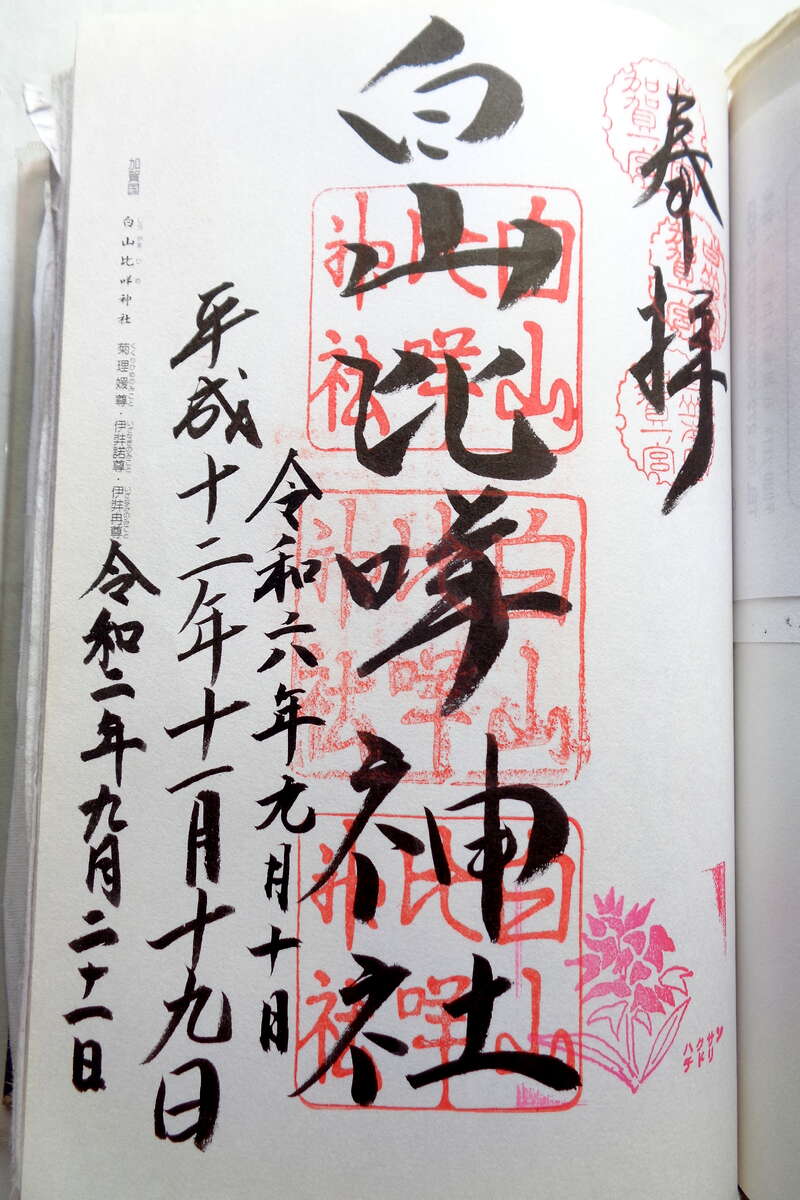 奉拝
加賀一宮
加賀一宮
加賀一宮
白山比咩神社
白山比咩神社
白山比咩神社
白山比咩神社
ハクサン
チドリ
令和六年元月十日
平成十二年十一月十九日
加賀国 白山比咩神社 菊理媛尊・伊弉諾尊・伊弉冉尊
令和二年九月二十一日